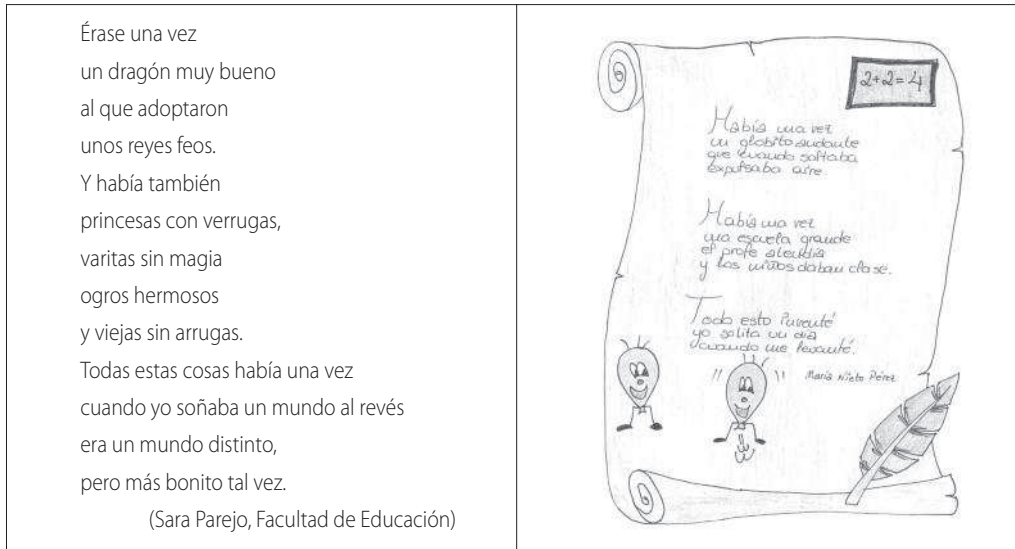 Érase una vez
un dragón muy bueno
al que adoptaron
unos reyes feos.
Y había también
princesas con verrugas,
varitas sin magia
ogros hermosos
y viejas sin arrugas.
Todas estas cosas había una vez
cuando yo soñaba un mundo al revés
era un mundo distinto,
pero más bonito tal vez.
(Sara Parejo, Facultad de Educación)
2+2=4
Había una vez
un globito andante
que cuando saltaba
expulsaba aire.
Había una vez
una escuela grande
el profe atendía
y los niños daban clase.
Todo esto inventé
yo solita un día
cuando me levanté.
María Nieto Pérez